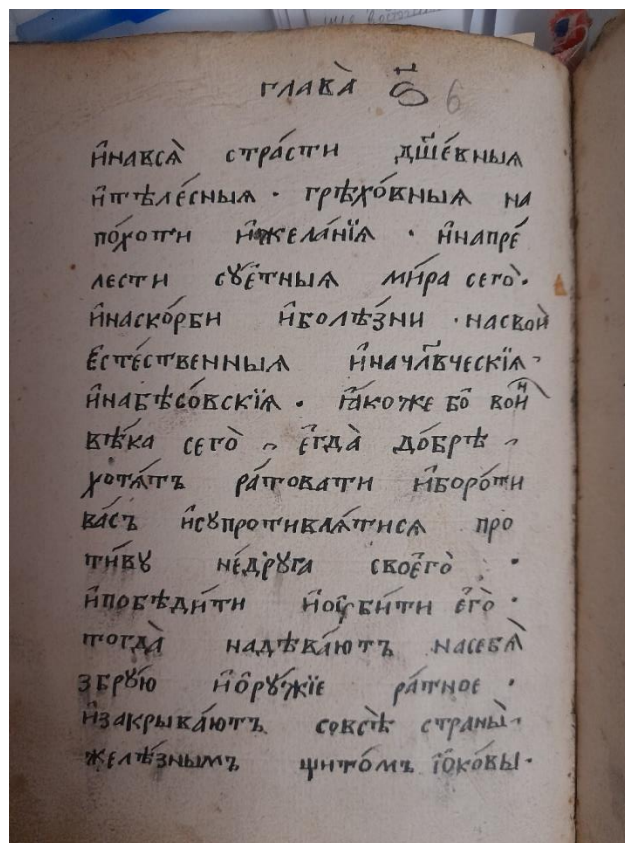 глава̀ 6
и҆навсѧ̀ стра́сти дш҃е́вныѧ
и҆тѣле́сныѧ · грѣхо́вныѧ на
по́хоти и҆жела́нїѧ · и҆напре́
лести сꙋ́е҆тныѧ ми́ра сего̀ ·
и҆наско́рби и҆болѣ́зни · насвои̑
є҆сте́ственныѧ и҆начл҃вческїѧ ·
и҆набѣсо́вскїѧ · ꙗ҆́коже бо̑ вои҆́н
вѣ́ка сего̀ , е҆гда̀ до́брѣ ,
хотѧ́тъ ра́товати и҆боро́ти
ва́съ и҆сꙋпротивлѧ́тисѧ про
ти́вꙋ не́дрꙋга свое҆го̀ ·
и҆побѣди́ти и҆оу҆би́ти е҆го̀ ·
тогда̀ надѣва́ютъ насебѧ̀
збрꙋ́ю и҆ѻ҆рꙋ́жїе ра́тное ·
и҆закрыва́ютъ совсѣ̀ страны̀ ·
желѣ́знымъ щито́мъ і҆ѻ҆ко́вы ·